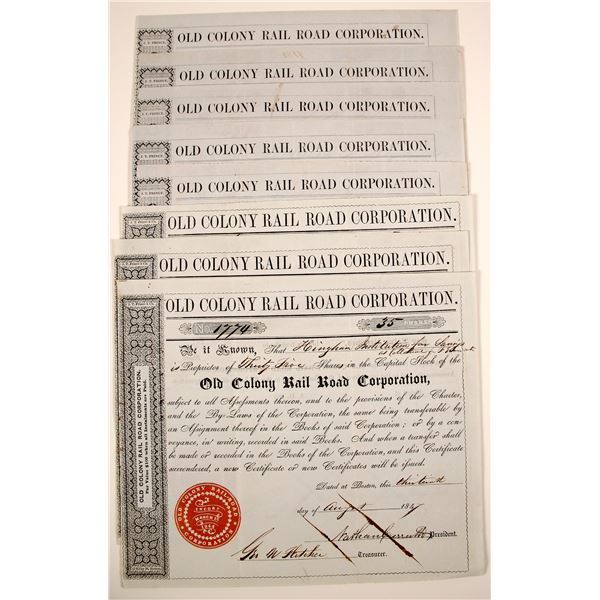 J. T. PRINCE.
OLD COLONY RAIL ROAD CORPORATION.
J. T. PRINCE.
OLD COLONY RAIL ROAD CORPORATION.
J. T. PRINCE.
OLD COLONY RAIL ROAD CORPORATION.
J. T. PRINCE.
OLD COLONY RAIL ROAD CORPORATION.
J. T. PRINCE.
OLD COLONY RAIL ROAD CORPORATION.
OLD COLONY RAIL ROAD CORPORATION.
OLD COLONY RAIL ROAD CORPORATION.
OLD COLONY RAIL ROAD CORPORATION.
No. 1774 35
Be it Known, That Hingham Institution for Savings
as Collateral
is Proprietor of Thirty Five Shares in the Capital Stock of the
Old Colony Rail Road Corporation,
subject to all Assessments thereon, and to the provisions of the Charter,
and the By-Laws of the Corporation, the same being transferable by
an Assignment thereof in the Books of said Corporation; or by a con-
veyance, in writing, recorded in said Books. And when a transfer shall
be made or recorded in the Books of the Corporation, and this Certificate
surrendered, a new Certificate or new Certificates will be issued.
Dated at Boston, this thirteenth
day of August 185
President.
Geo W Treasurer.
OLD COLONY RAIL ROAD CORPORATION.
Par Value $100 when all Instalments are Paid.
OLD COLONY RAILROAD
CORPORATION
INCORP
MARCH